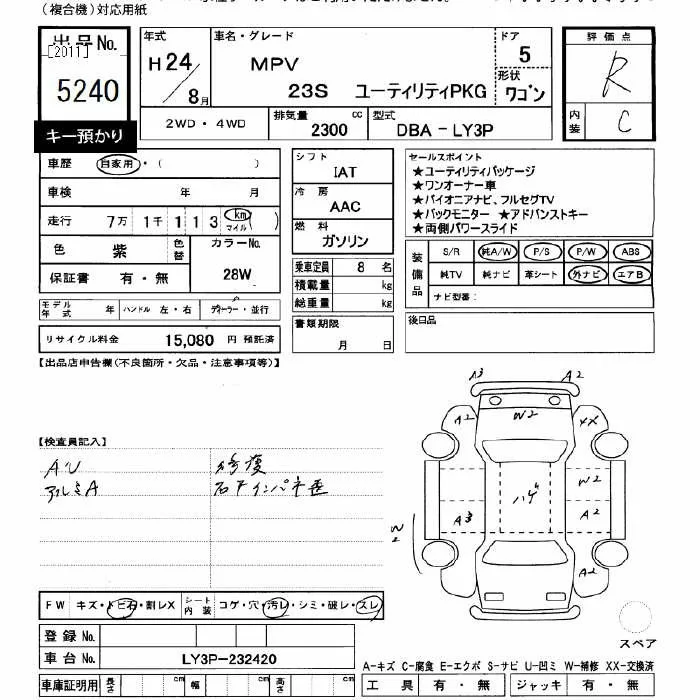 (複合機)対応用紙
出品No.
[2011]
5240
キー預かり
年式
H24/8月
車名・グレード
MPV
23S ユーティリティPKG
ドア
5
形状
ワゴン
評価点
R
内装
C
2WD・4WD
排気量 2300 cc
型式 DBA-LY3P
車歴 自家用・( )
車検 年 月
走行 7万 1千 1 1 3 km マイル
色 紫
色替
カラーNo.
28W
保証書 有・無
モデル年式 年
ハンドル 左・右
ディーラー・並行
リサイクル料金 15,080 円 預託済
シフト
IAT
冷房
AAC
燃料
ガソリン
乗車定員 8 名
積載量 kg
総重量 kg
書類期限
月 日
セールスポイント
★ユーティリティパッケージ
★ワンオーナー車
★パイオニアナビ、フルセグTV
★バックモニター ★アドバンストキー
★両側パワースライド
装備品
S/R 純A/W P/S P/W ABS
純TV 純ナビ 革シート 外ナビ エアB
ナビ型番:
後日品
【出品店申告欄(不良箇所・欠品・注意事項等)】
【検査員記入】
AU 修復
アルミA 右下インパネ歪
A3 A2
W2
A2 XX
W2
ハゲ
A3 A2
W2
A2
FW キズ・トビ石・割レX
シート内装 コゲ・穴・汚レ・シミ・破レ・スレ
登録No.
車台No. LY3P-232420
車庫証明用 長さ cm 幅 cm 高さ cm
スペア
A-キズ C-腐食 E-エクボ S-サビ U-凹ミ W-補修 XX-交換済
工具 有・無 ジャッキ 有・無